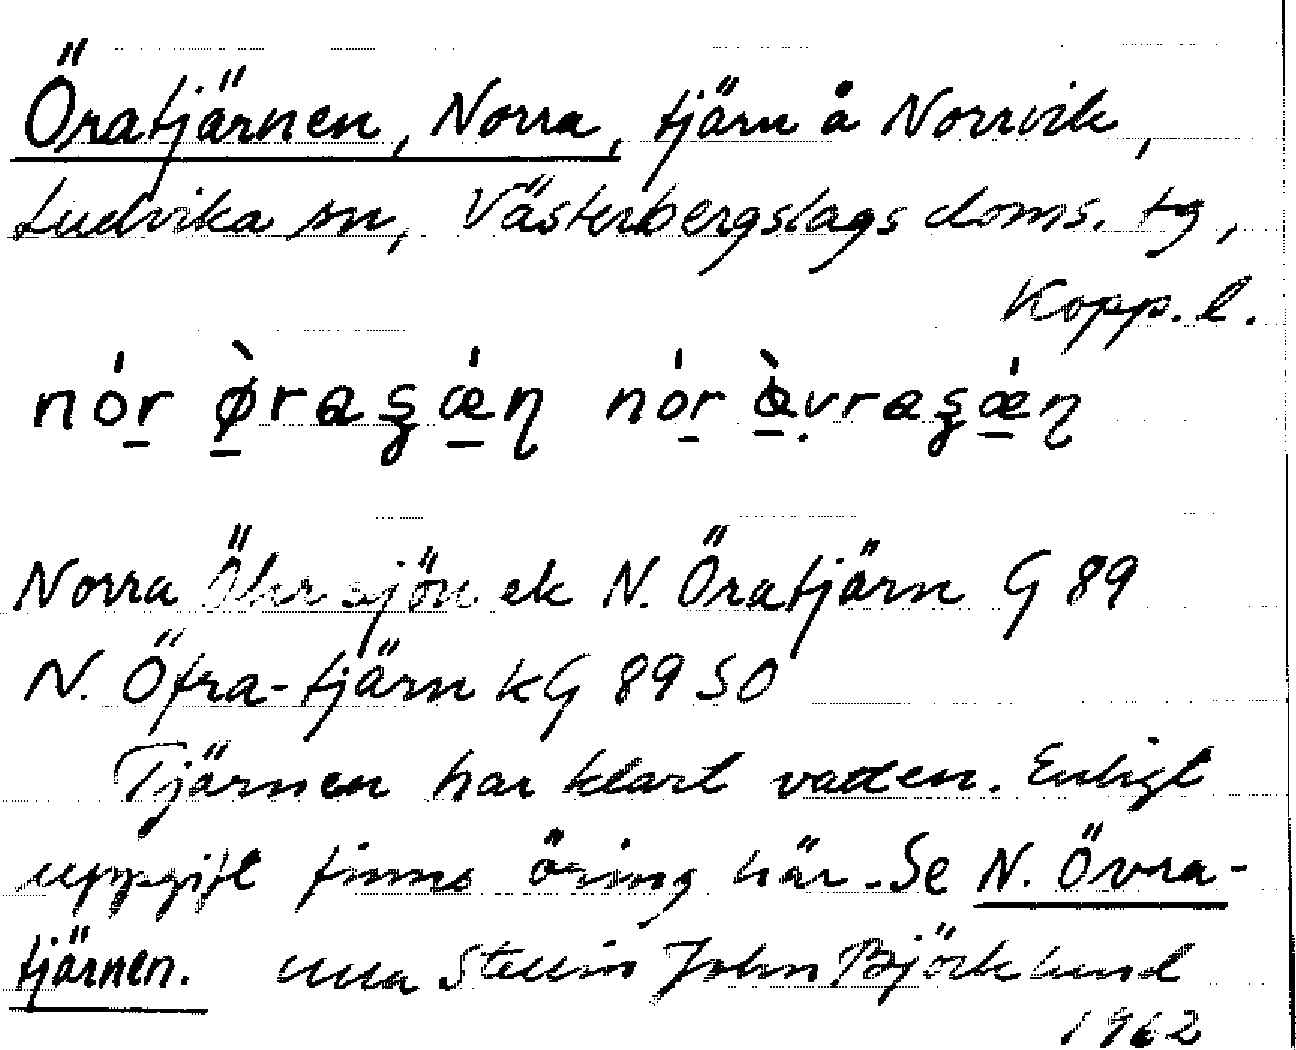 Öratjärnen, Norra, tjärn å Norrvik,
Ludvika sn, Västerbergslags doms. tg,
Kopp. l.
Norra Öhrsjön ek N. Öratjärn G 89
N. Öfra-tjärn kG 89 SO
Tjärnen har klart vatten. Enligt
uppgift finns öring här. Se N. Övra-
tjärnen. Ulla Stellin John Björklund
1962